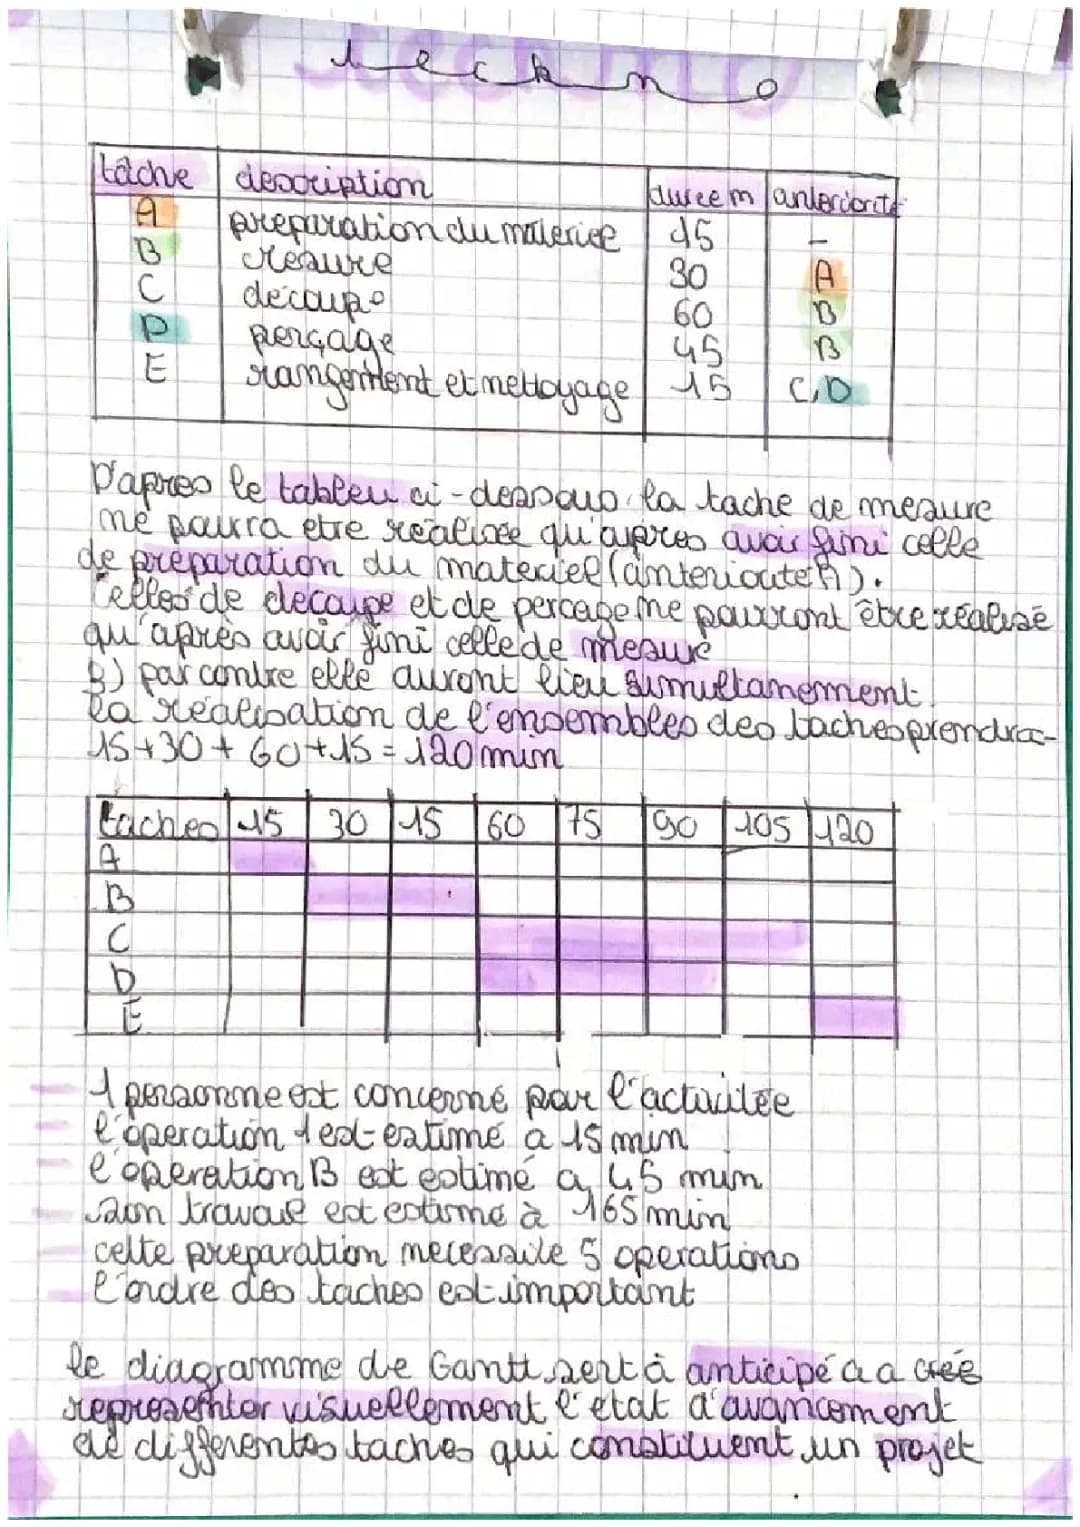 techno
tâche description duree m anteriorité
A preparation du materiel 15 -
B mesure 30 A
C découpe 60 B
D perçage 45 B
E rangement et nettoyage 15 C,D
D'apres le tableu ci-dessous la tache de mesure
ne pourra etre realisee qu'apres avoir fini celle
de préparation du materiel (anterioute A).
Celles de decoupe et de percage ne pourront être réalisé
qu'après avoir fini celle de mesure
B) par contre elle auront lieu simultanement.
la réalisation de l'ensembles des taches prendra
15+30+60+15=120min
taches 15 30 15 60 75 90 105 120
A
B
C
D
E
1 personne est concerné par l'activitée
l'operation 1 est estimé a 15 min
l'operation B est estimé a 45 min
son travail est estimé à 165 min
cette preparation necessite 5 operations
l'ordre des taches est important
le diagramme de Gantt sert à anticipé a a creé
representer visuellement l'etat d'avancement
de differentes taches qui constituent un projet